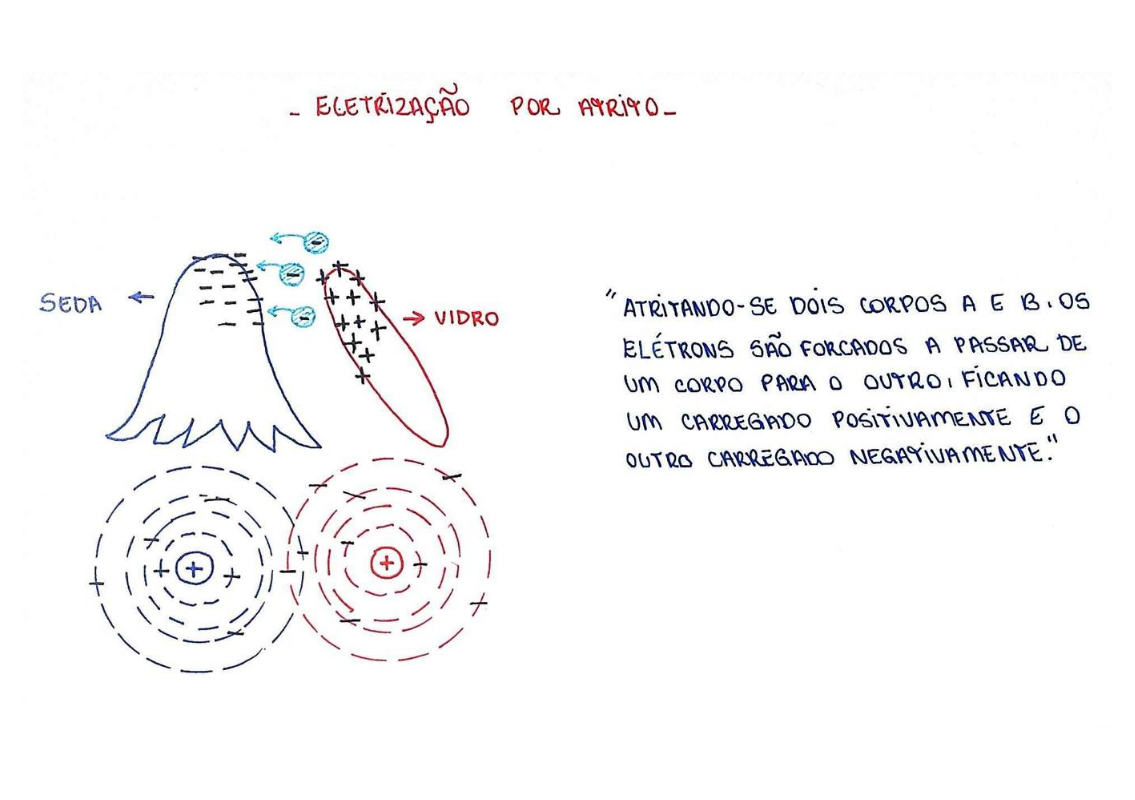 - ELETRIZAÇÃO POR ATRITO -
SEDA
VIDRO
"ATRITANDO-SE DOIS CORPOS A E B, OS
ELÉTRONS SÃO FORCADOS A PASSAR DE
UM CORPO PARA O OUTRO, FICANDO
UM CARREGADO POSITIVAMENTE E O
OUTRO CARREGADO NEGATIVAMENTE."